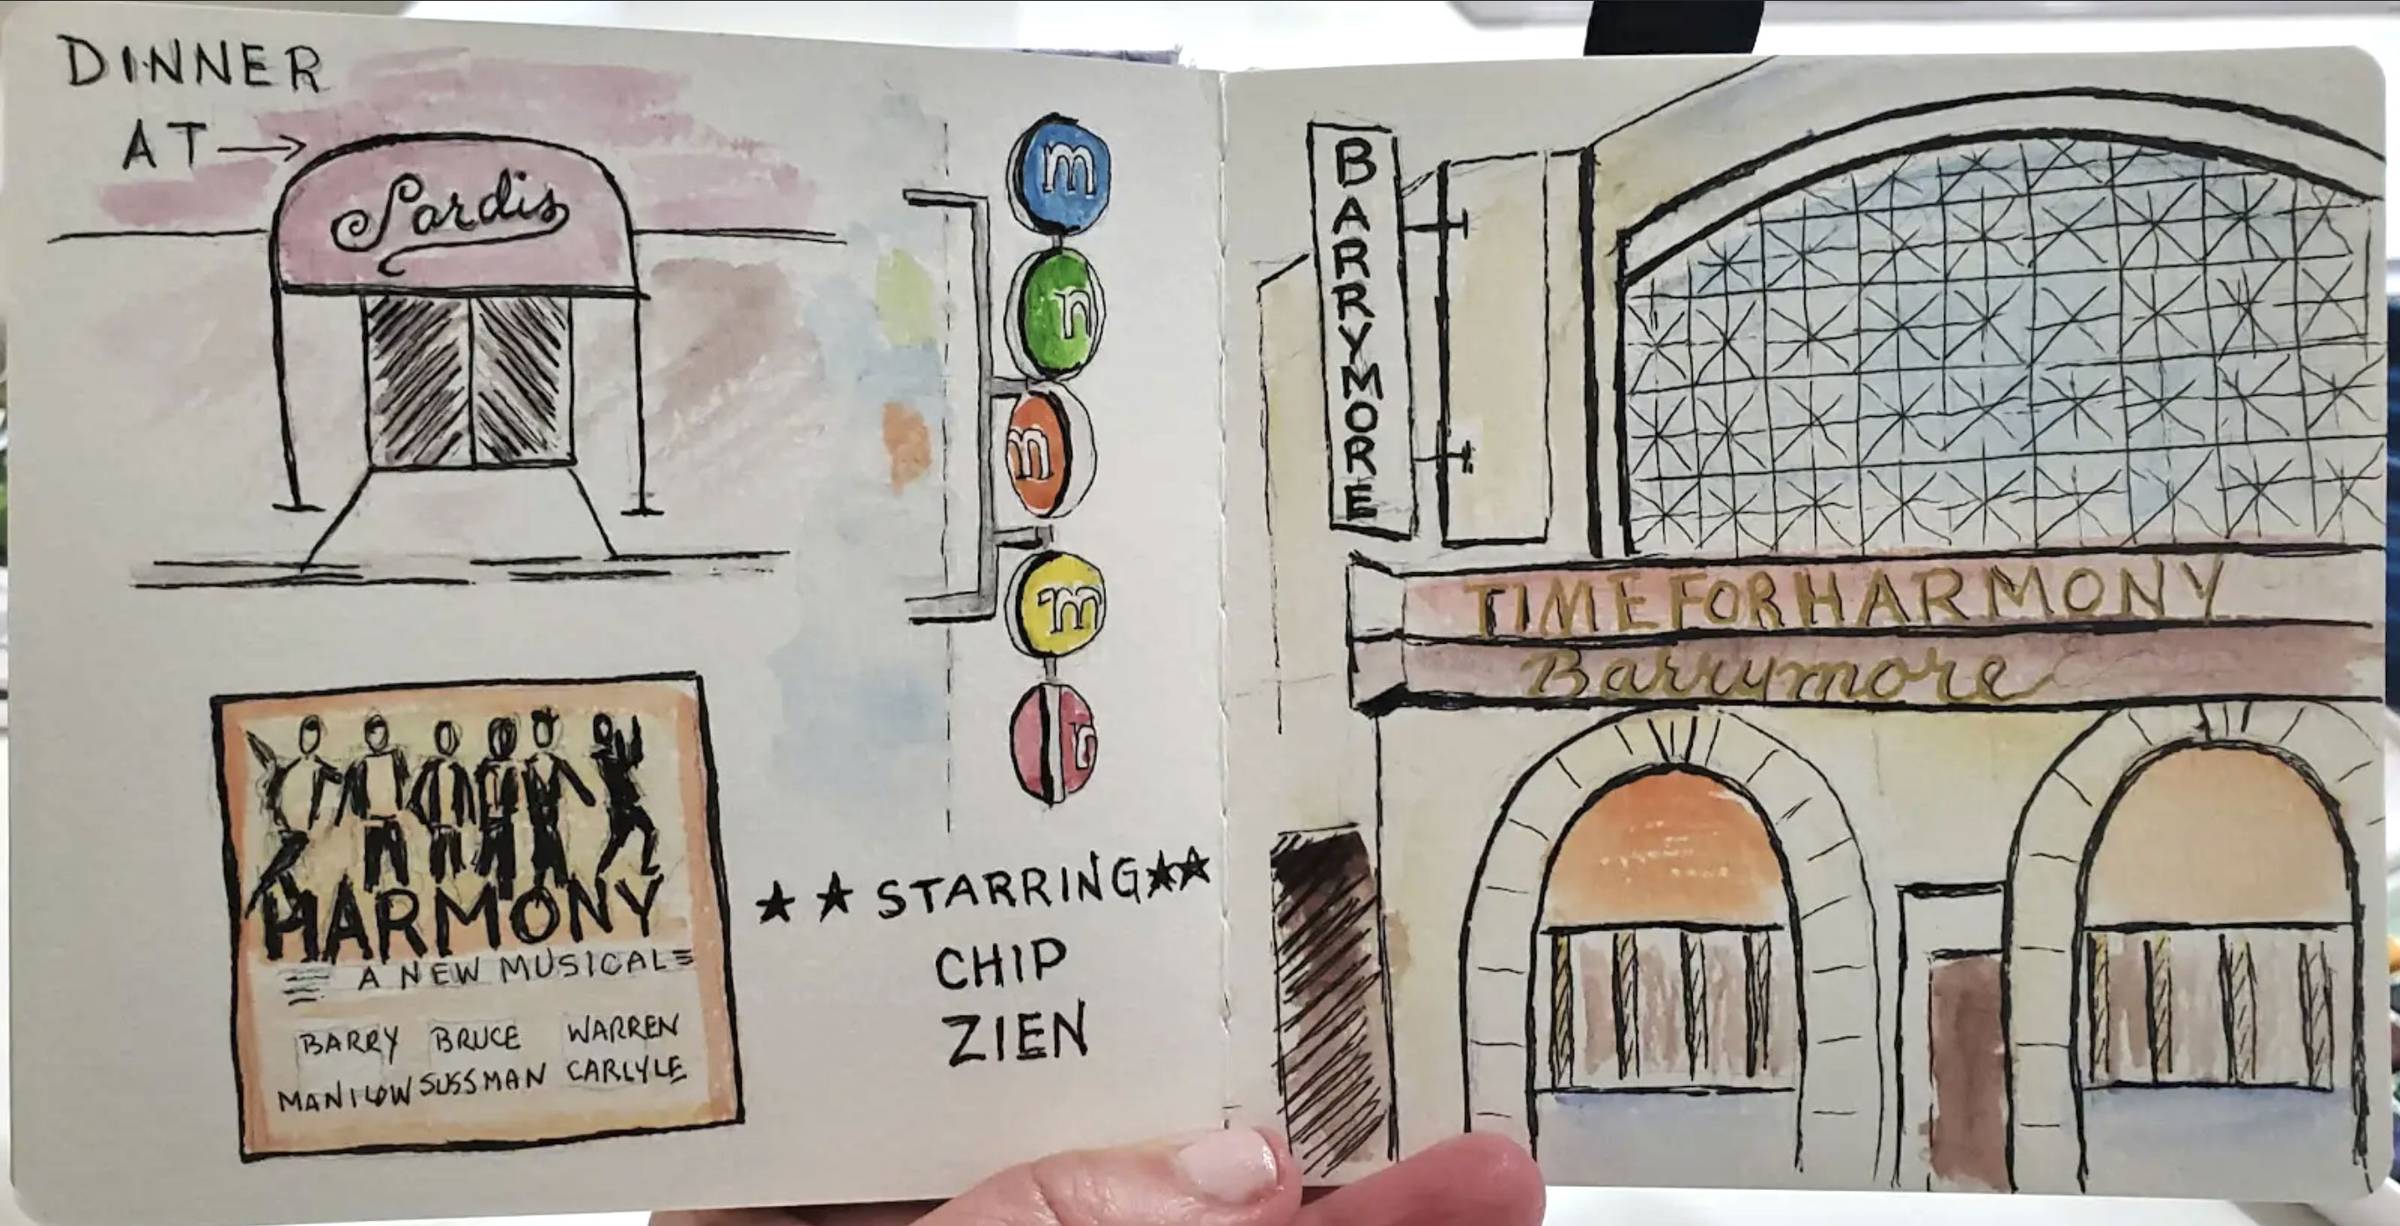 DINNER
AT
Sardis
m
n
m
m
n
HARMONY
A NEW MUSICAL
BARRY BRUCE WARREN
MANILOW SUSSMAN CARLYLE
STARRING
CHIP
ZIEN
BARRYMORE
TIME FOR HARMONY
Barrymore